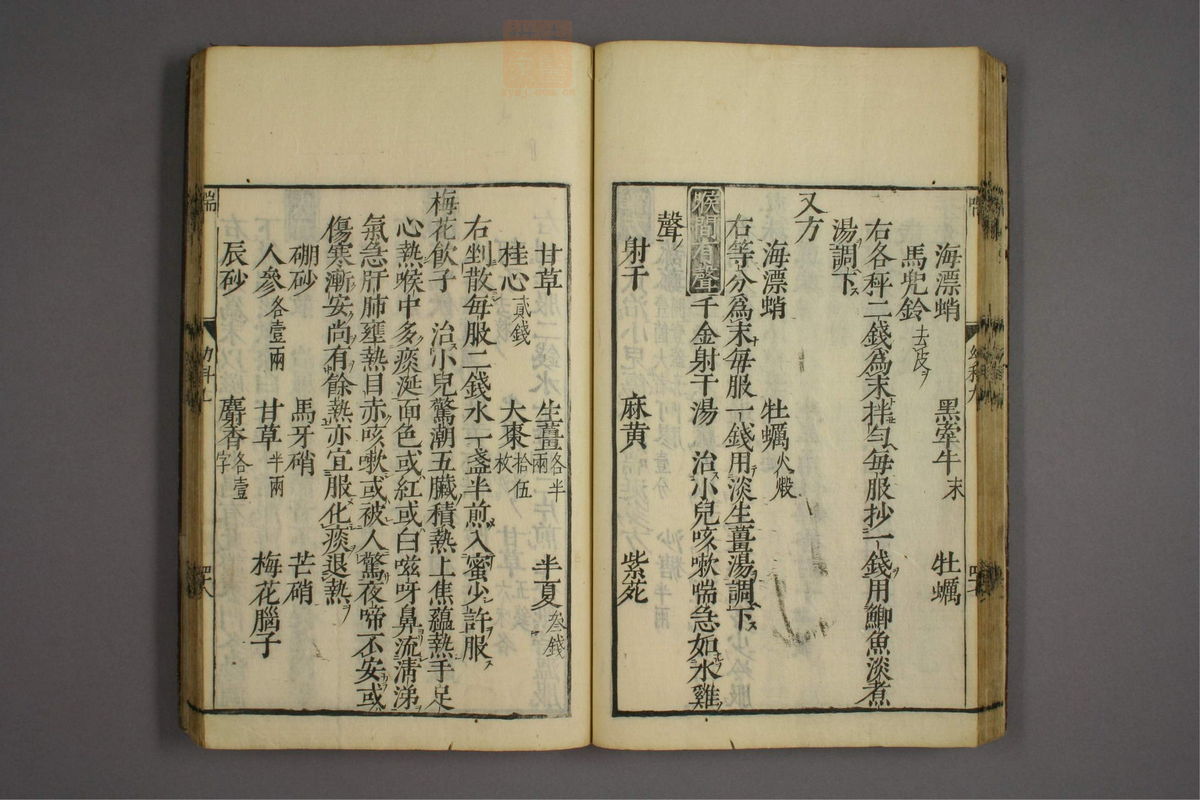 海漂蛸 黑牽牛末 牡蠣
馬兜鈴去皮
右各秤二錢爲末拌勻每服抄一錢用鯽魚淡煮
湯調下
又方
海漂蛸 牡蠣火煅
右等分爲末每服一錢用淡生薑湯調下
喉間有聲 千金射干湯 治小兒咳嗽喘急如水雞
聲
射干 麻黄 紫菀
甘草 生薑各半兩 半夏叁錢
桂心貳錢 大棗拾伍枚
右剉散每服二錢水一盞半煎入蜜少許服
梅花飲子 治小兒驚潮五臟積熱上焦蘊熱手足
心熱喉中多痰涎面色或紅或白嗞呀鼻流清涕
氣急肝肺壅熱目赤咳嗽或被人驚夜啼不安或
傷寒漸安尚有餘熱亦宜服化痰退熱
硼砂 馬牙硝 芒硝
人參各壹兩 甘草半兩 梅花腦子
辰砂 麝香各壹字